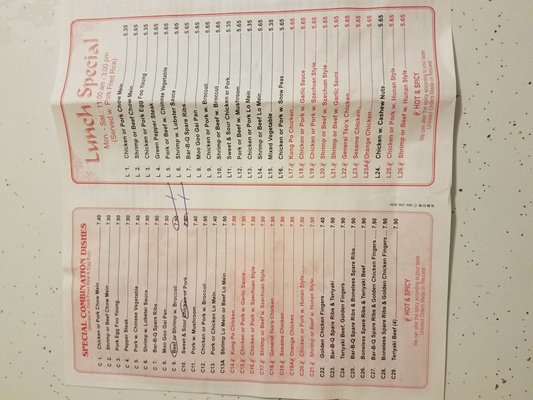 Lunch Special
Mon. - Sat. 11:00 am - 3:00 pm
(Served w. Pork Fried Rice)
L 1. Chicken or Pork Chow Mein 5.35
L 2. Shrimp or Beef Chow Mein 5.65
L 3. Chicken or Pork Egg Foo Young 5.35
L 4. Green Pepper Steak 5.65
L 5. Pork or Beef w. Chinese Vegetable 5.65
L 6. Shrimp w. Lobster Sauce 5.65
L 7. Bar-B-Q Spare Ribs 5.65
L 8. Moo Goo Gai Pan 5.65
L 9. Chicken or Pork w. Broccoli 5.65
L10. Shrimp or Beef w. Broccoli 5.65
L11. Sweet & Sour Chicken or Pork 5.65
L12. Pork or Beef w. Mushroom 5.65
L13. Chicken or Pork Lo Mein 5.65
L14. Shrimp or Beef Lo Mein 5.65
L15. Mixed Vegetable 5.65
L16. Chicken or Pork w. Snow Peas 5.65
L17. Kung Po Chicken 5.65
L18. Chicken or Pork w. Garlic Sauce 5.65
L19. Chicken or Pork w. Szechuan Style 5.65
L20. Shrimp or Beef w. Szechuan Style 5.65
L21. Shrimp or Beef w. Garlic Sauce 5.65
L22. General Tso's Chicken 5.65
L23. Sesame Chicken 5.65
L23A. Orange Chicken 5.65
L24. Chicken w. Cashew Nuts 5.65
L25. Chicken or Pork w. Hunan Style 5.65
L26. Shrimp or Beef w. Hunan Style 5.65
HOT & SPICY
We can alter the spicy according to your taste
SPECIAL COMBINATION DISHES
C 1. Chicken or Pork Chow Mein 7.40
C 2. Shrimp or Beef Chow Mein 7.90
C 3. Pork Egg Foo Young 7.90
C 4. Pepper Steak 7.90
C 5. Pork w. Chinese Vegetable 7.90
C 6. Shrimp w. Lobster Sauce 7.90
C 7. Bar-B-Q Spare Ribs 7.90
C 8. Moo Goo Gai Pan 7.90
C 9. or Shrimp w. Broccoli 7.90
C10. Sweet & Sour Pork
C11. Pork w. Mushroom 7.40
C12. Chicken or Pork w. Broccoli 7.90
C13. Pork or Chicken Lo Mein 7.90
C13A. Shrimp Lo Mein or Beef Lo Mein 7.90
C14. Kung Po Chicken 7.90
C15. Chicken or Pork w. Garlic Sauce 7.90
C16. Chicken or Pork w. Szechuan Style 7.90
C17. Shrimp or Beef w. Szechuan Style 7.90
C18. General Tso's Chicken 7.90
C19. Sesame Chicken 7.90
C19A. Orange Chicken 7.90
C20. Chicken or Pork w. Hunan Style 7.90
C21. Shrimp or Beef w. Hunan Style 7.90
C22. Golden Chicken Fingers 7.40
C23. Bar-B-Q Spare Ribs & Teriyaki 7.90
C24. Teriyaki Beef, Golden Fingers 7.90
C25. Bar-B-Q Spare Ribs & Boneless Spare Ribs 7.90
C26. Boneless Spare Ribs & Teriyaki Beef 7.90
C27. Bar-B-Q Spare Ribs & Golden Chicken Fingers 7.90
C28. Boneless Spare Ribs & Golden Chicken Fingers 7.90
C29. Teriyaki Beef (4) 7.90
HOT & SPICY
We can alter the spicy according to your taste